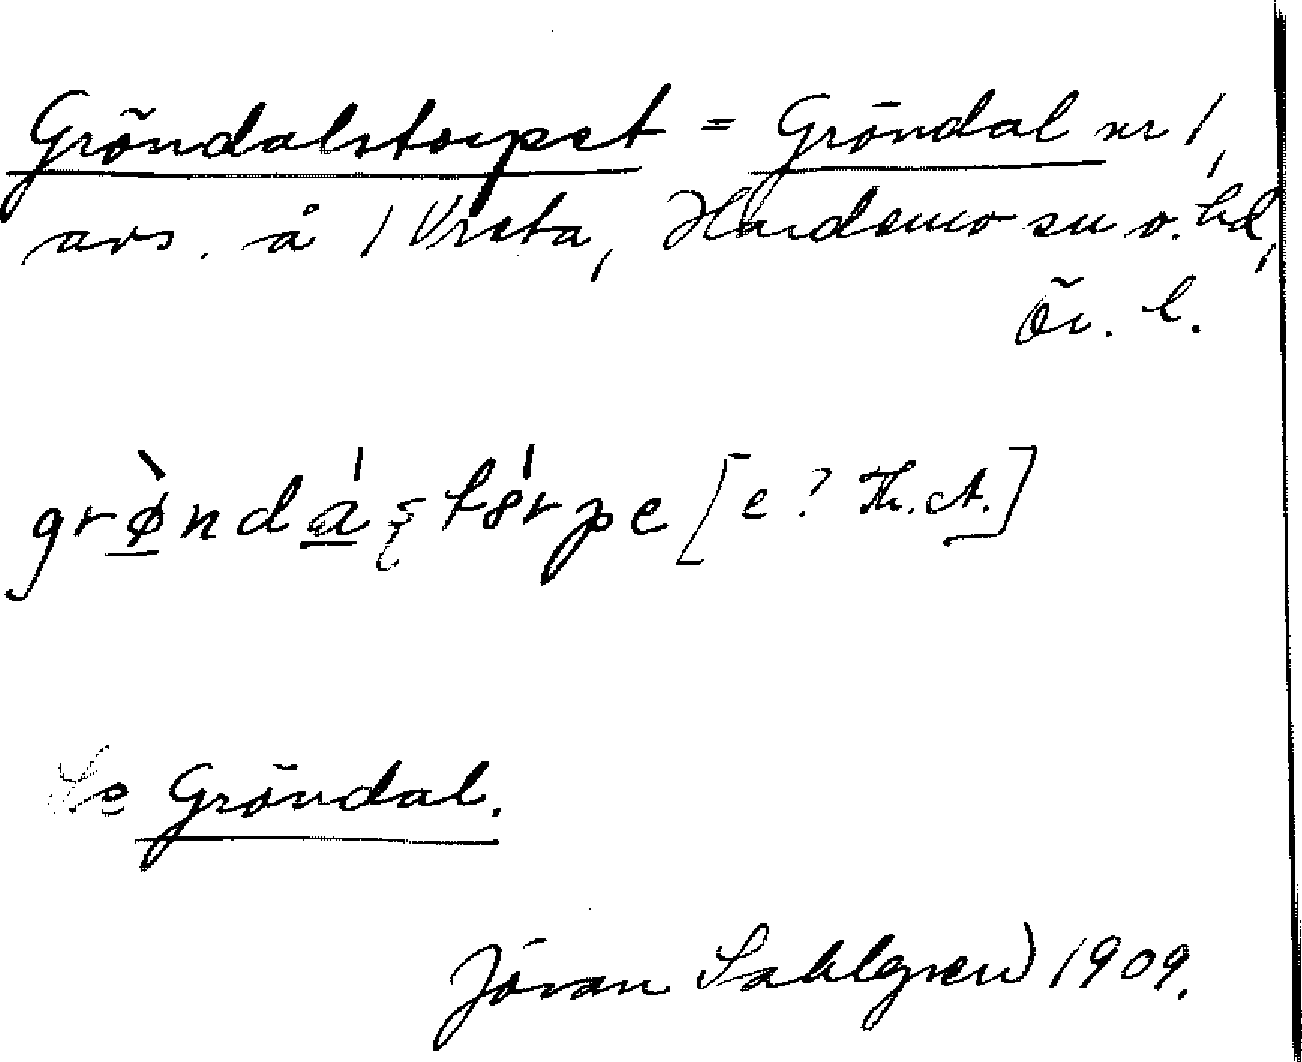 Gröndalstorpet = Gröndal nr 1,
avs. å 1 Vreta, Hardemo sn o. hd,
Ör. l.
grø̀ndáꞎstȯ́rpe [e? Th. A.]
Se Gröndal.
Jöran Sahlgren 1909.